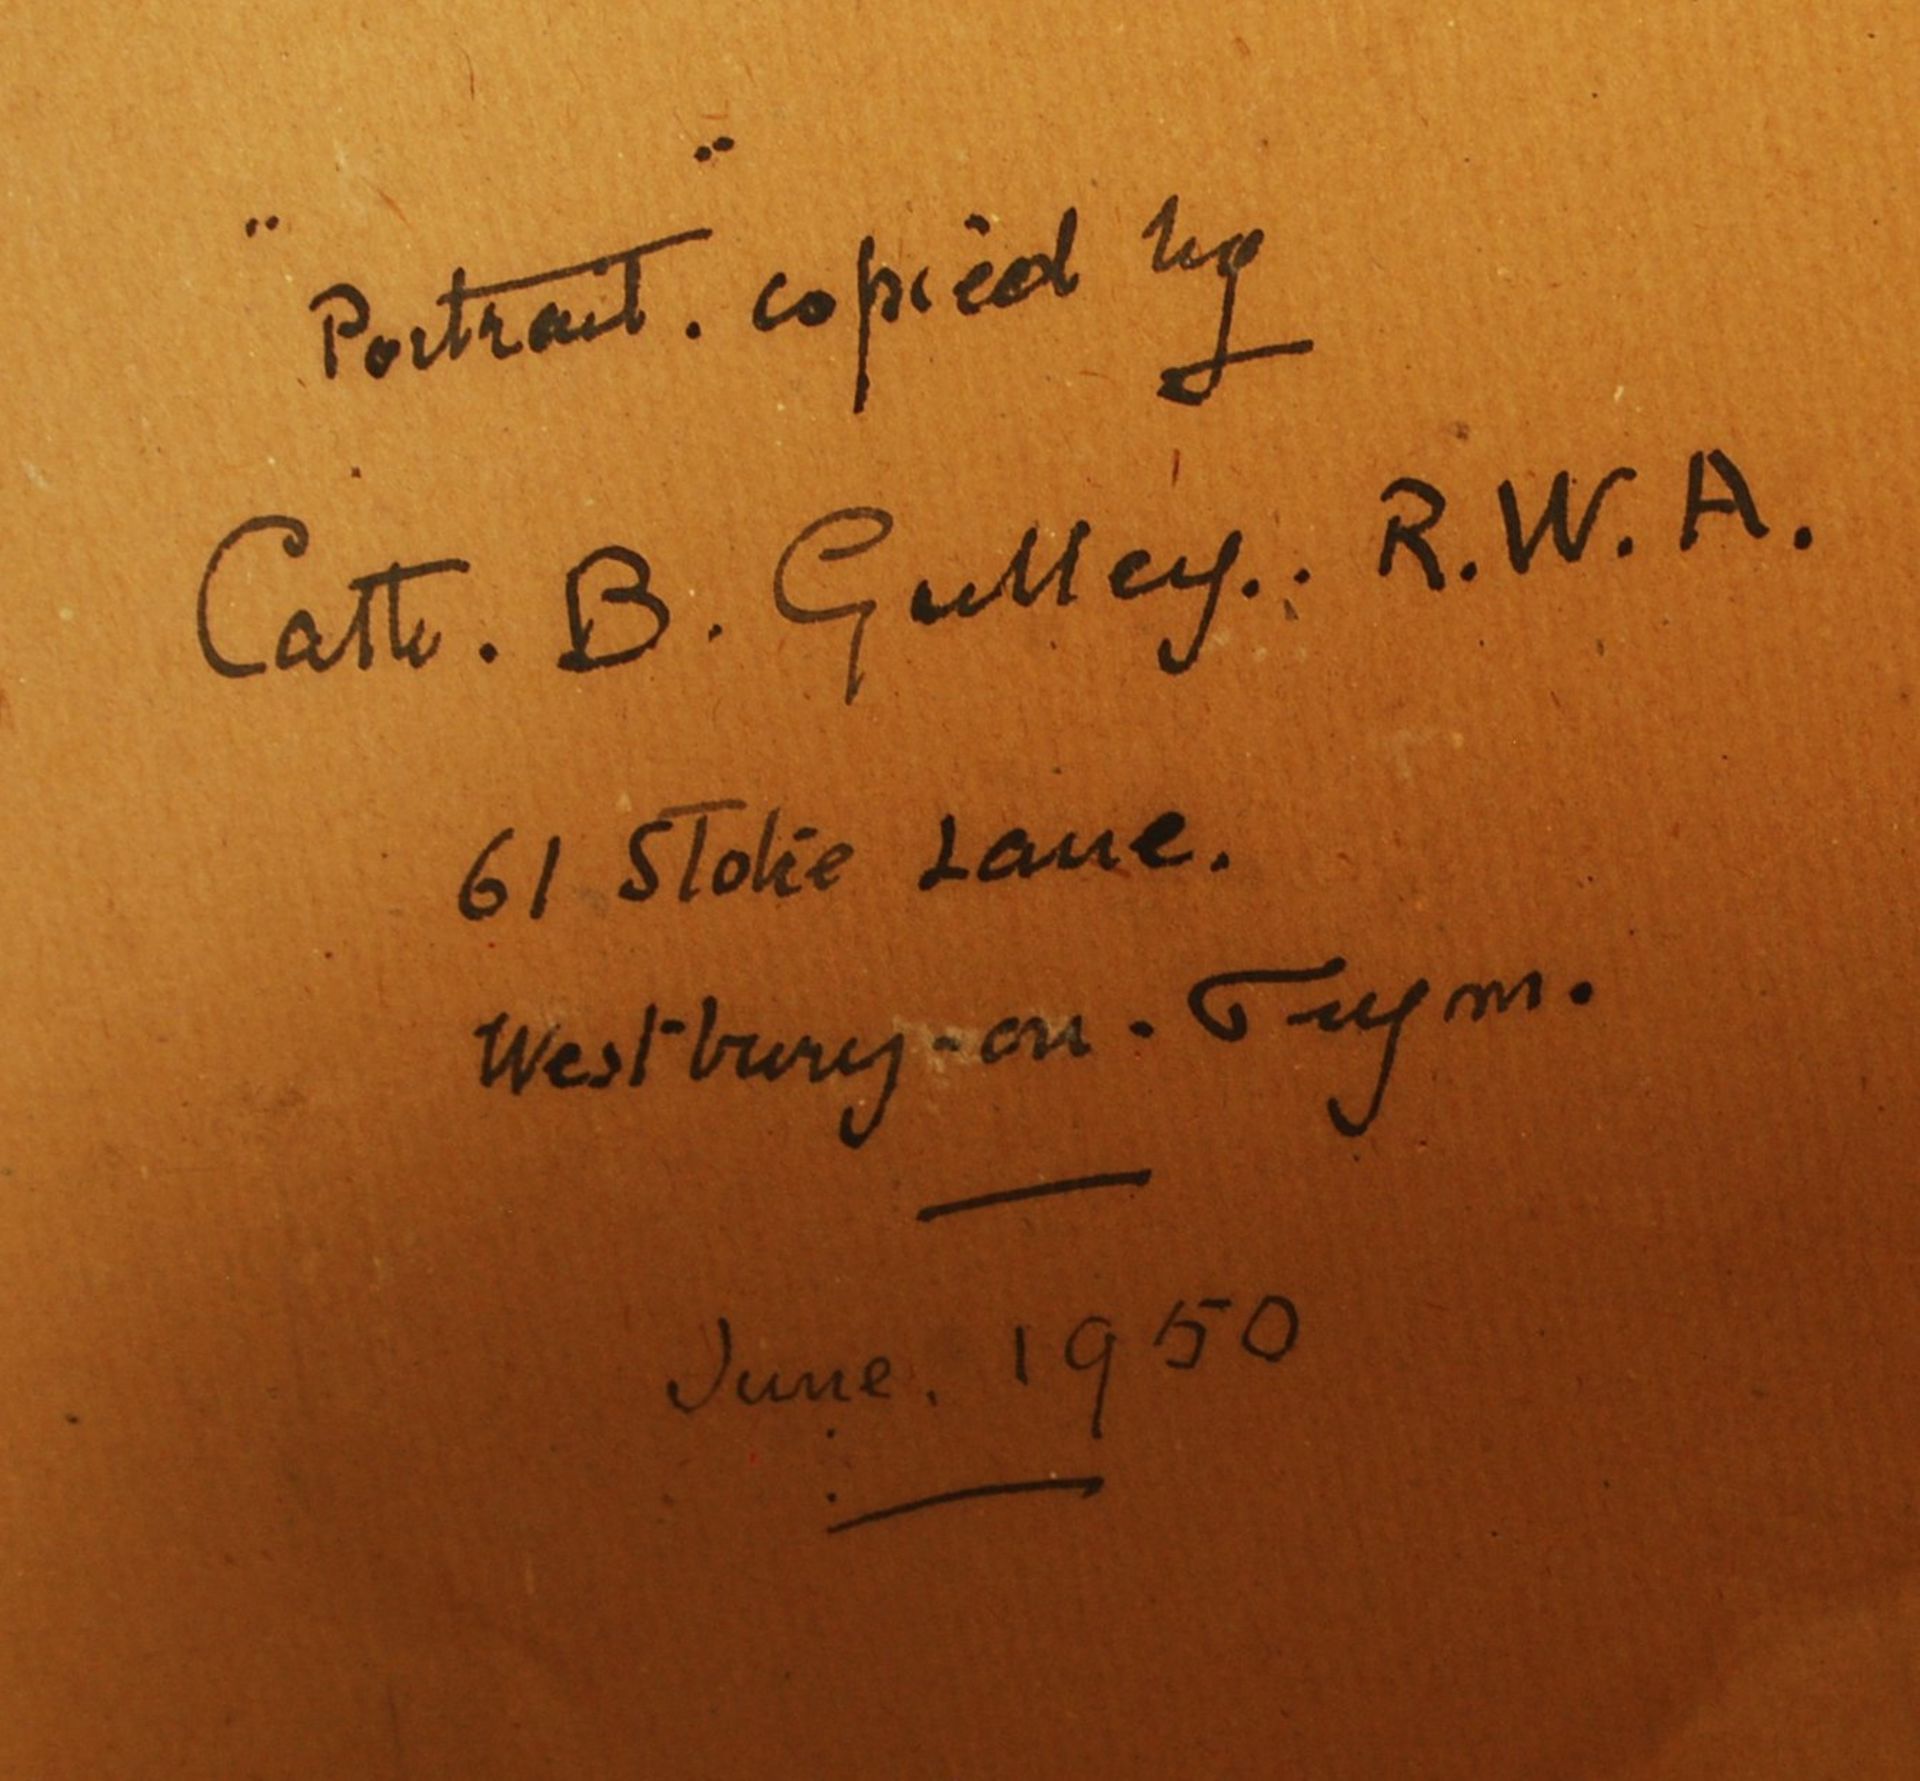 "Portrait". copied by
Cath. B. Gulley.. R.W.A.
61 Stoke Lane.
Westbury-on-Trym.
June. 1950